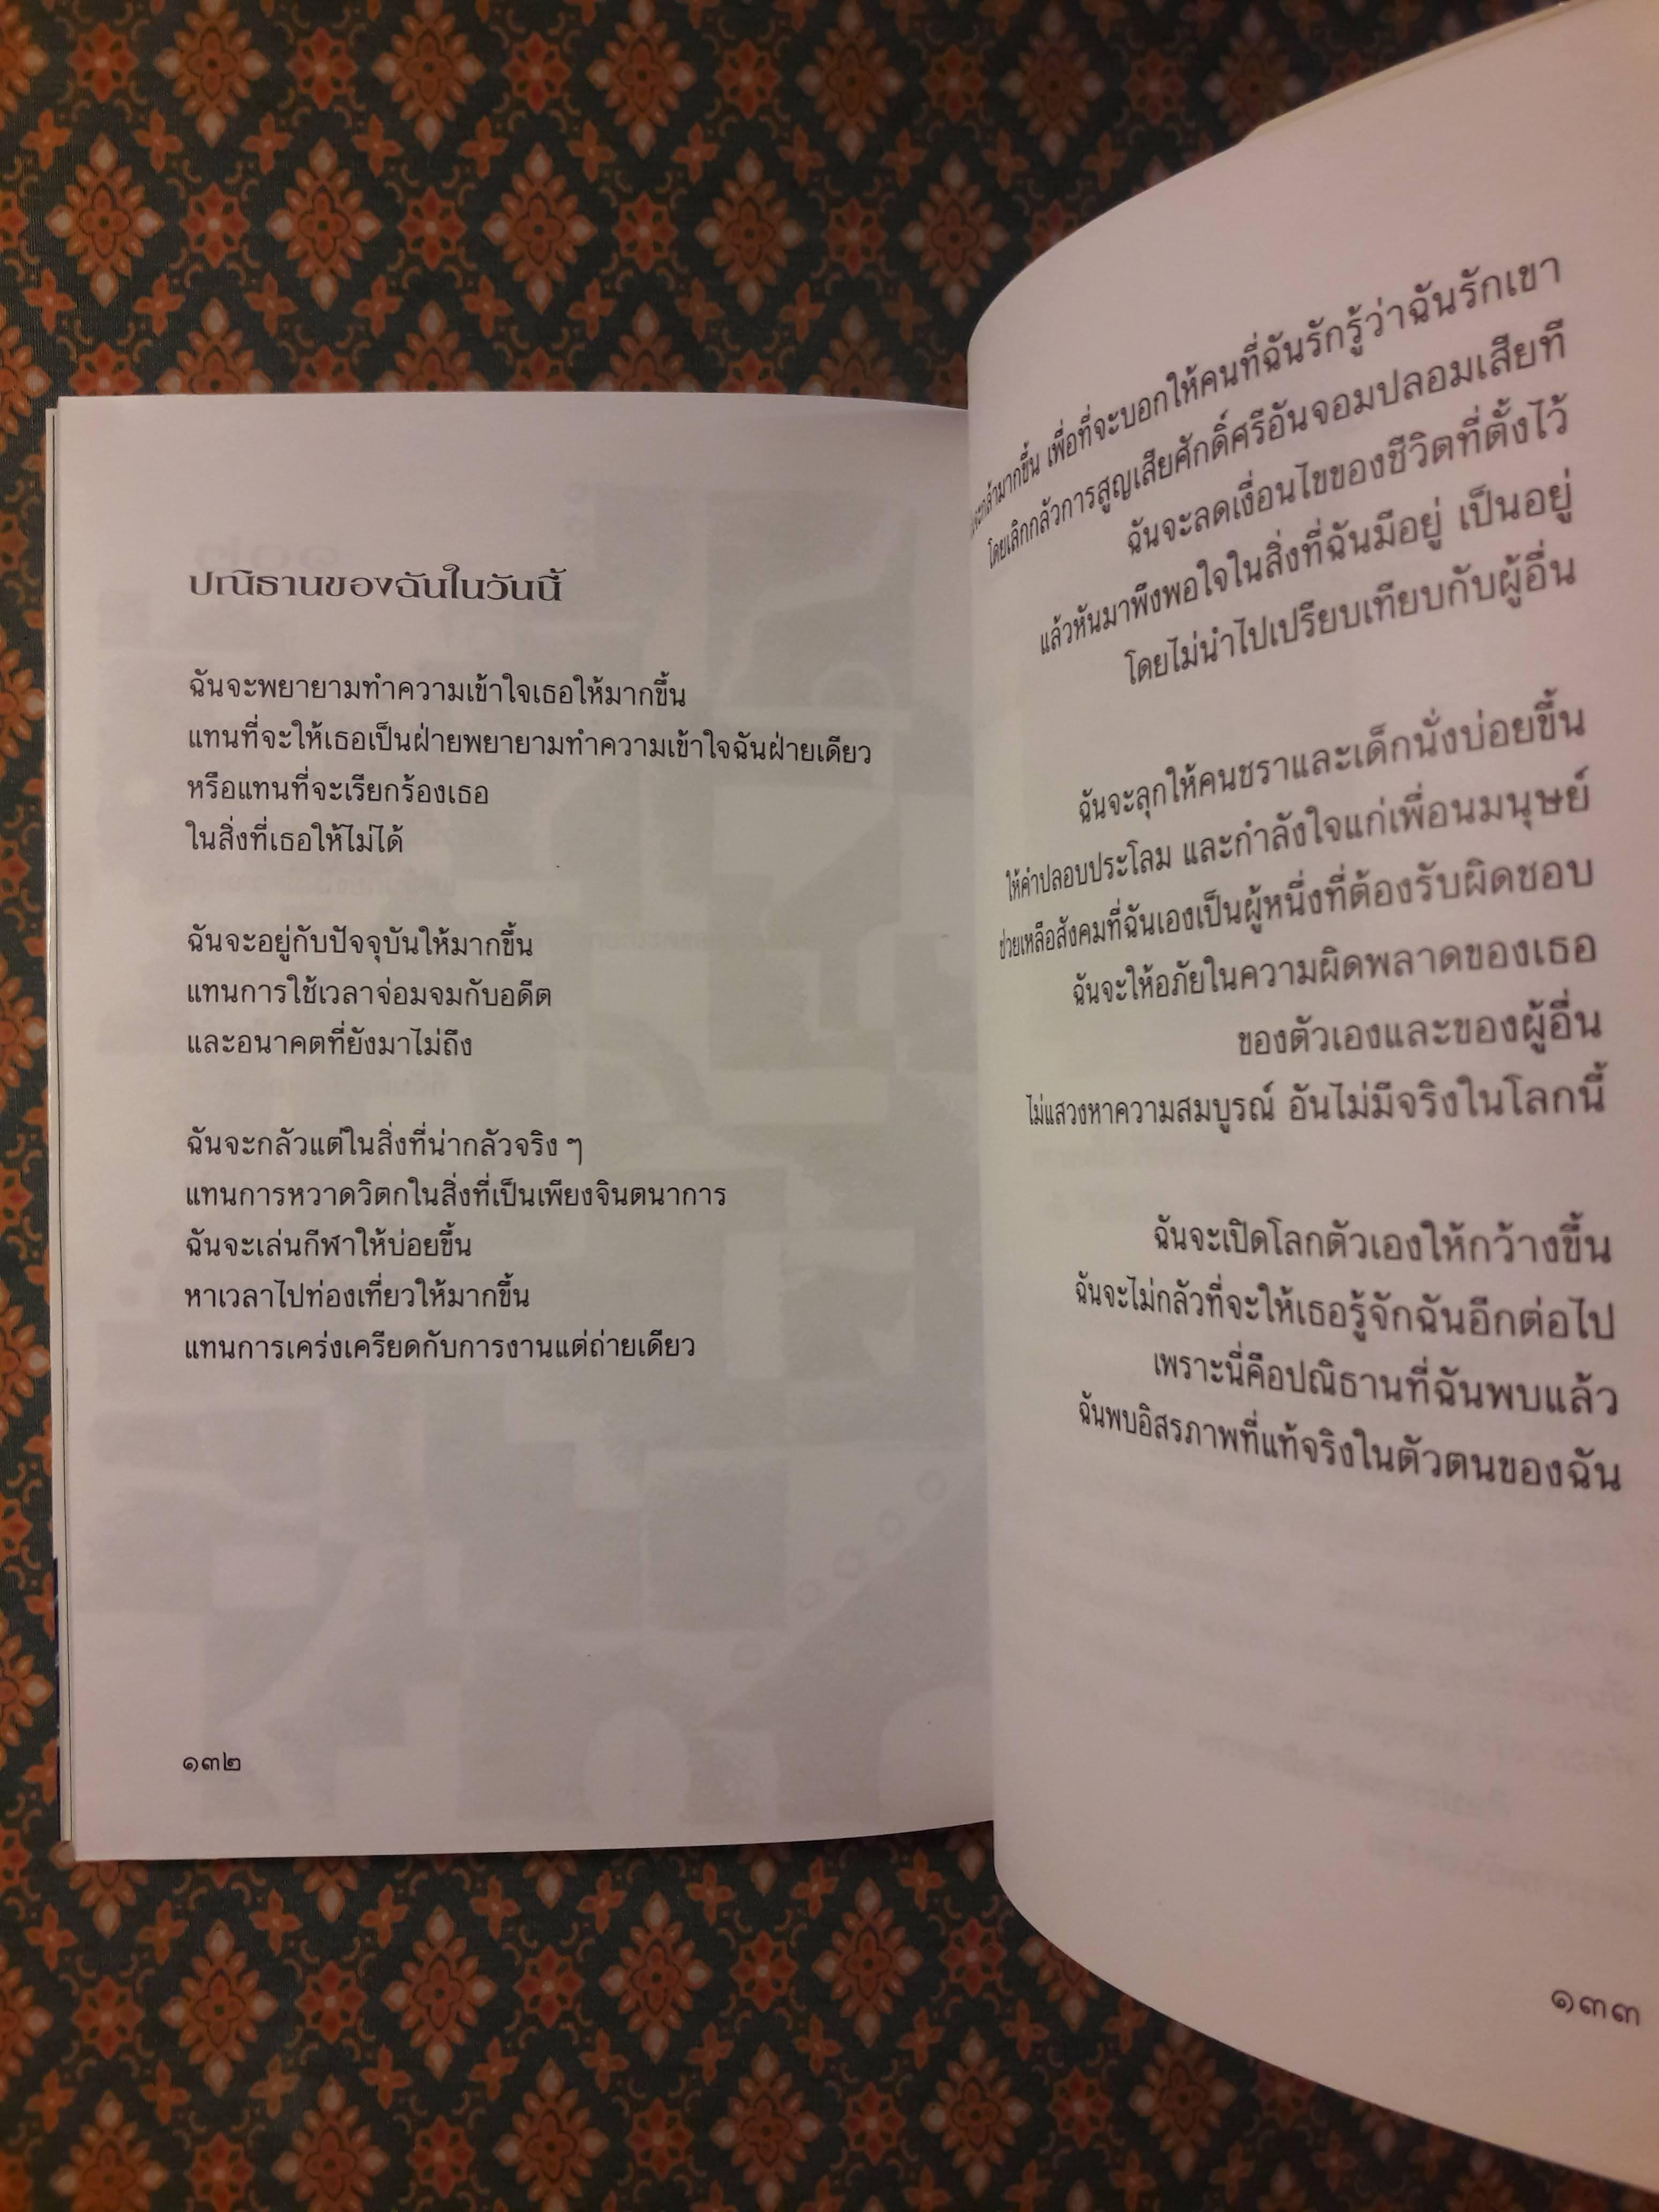 ปณิธานของฉันในวันนี้
ฉันจะพยายามทำความเข้าใจเธอให้มากขึ้น
แทนที่จะให้เธอเป็นฝ่ายพยายามทำความเข้าใจฉันฝ่ายเดียว
หรือแทนที่จะเรียกร้องเธอ
ในสิ่งที่เธอให้ไม่ได้
ฉันจะอยู่กับปัจจุบันให้มากขึ้น
แทนการใช้เวลาจ่อมจมกับอดีต
และอนาคตที่ยังมาไม่ถึง
ฉันจะกลัวแต่ในสิ่งที่น่ากลัวจริง ๆ
แทนการหวาดวิตกในสิ่งที่เป็นเพียงจินตนาการ
ฉันจะเล่นกีฬาให้บ่อยขึ้น
หาเวลาไปท่องเที่ยวให้มากขึ้น
แทนการเคร่งเครียดกับการงานแต่ถ่ายเดียว
๑๓๒
กล้ามากขึ้น เพื่อที่จะบอกให้คนที่ฉันรักรู้ว่าฉันรักเขา
โดยเลิกกลัวการสูญเสียศักดิ์ศรีอันจอมปลอมเสียที
ฉันจะลดเงื่อนไขของชีวิตที่ตั้งไว้
แล้วหันมาพึงพอใจในสิ่งที่ฉันมีอยู่ เป็นอยู่
โดยไม่นำไปเปรียบเทียบกับผู้อื่น
ฉันจะลุกให้คนชราและเด็กนั่งบ่อยขึ้น
ให้คำปลอบประโลม และกำลังใจแก่เพื่อนมนุษย์
ช่วยเหลือสังคมที่ฉันเองเป็นผู้หนึ่งที่ต้องรับผิดชอบ
ฉันจะให้อภัยในความผิดพลาดของเธอ
ของตัวเองและของผู้อื่น
ไม่แสวงหาความสมบูรณ์ อันไม่มีจริงในโลกนี้
ฉันจะเปิดโลกตัวเองให้กว้างขึ้น
ฉันจะไม่กลัวที่จะให้เธอรู้จักฉันอีกต่อไป
เพราะนี่คือปณิธานที่ฉันพบแล้ว
ฉันพบอิสรภาพที่แท้จริงในตัวตนของฉัน
๑๓๓